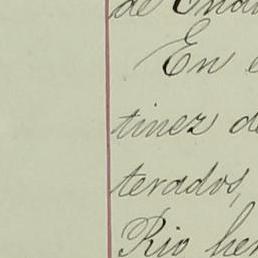 de
En
tinez de
terados,
Rio her